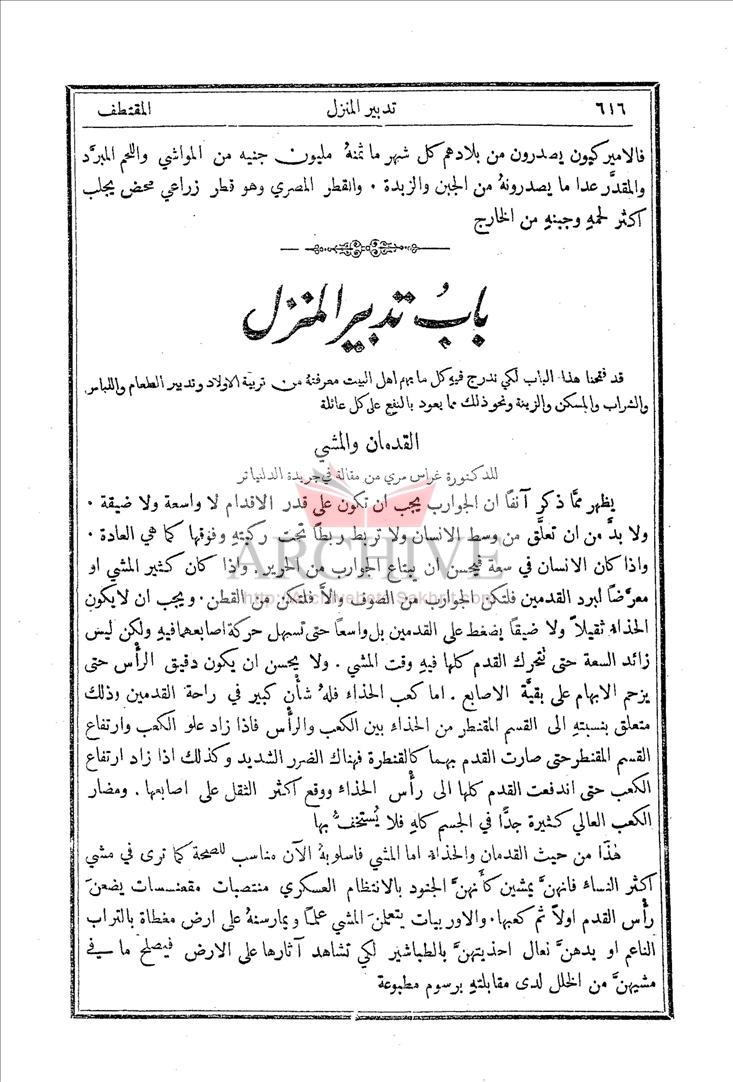 ٦١٦ تدبير المنزل المقتطف
فالاميركيون يصدرون من بلادهم كل شهر ما ثمنهُ مليون جنيه من المواشي واللحم المبرَّد
والمقدَّر عدا ما يصدرونهُ من الجبن والزبدة ٠ والقطر المصري وهو قطر زراعي محض يجلب
اكثر لحمهِ وجبنهِ من الخارج
بابُ تدبير المنزل
قد فتحنا هذا الباب لكي ندرج فيهِ كل ما يهم اهل البيت معرفتهُ من تربية الاولاد وتدبير الطعام واللباس
والشراب والمسكن والزينة ونحو ذلك مما يعود بالنفع على كل عائلة
القدمان والمشي
للدكتورة غراس مري من مقالة في جريدة الدلنياتر
يظهر ممَّا ذكر آنفًا ان الجوارب يجب ان تكون على قدر الاقدام لا واسعة ولا ضيقة ٠
ولا بدَّ من ان تعلَّق من وسط الانسان ولا تربط ربطًا تحت ركبتهِ وفوقها كما هي العادة ٠
واذا كان الانسان في سعة فيحسن ان يبتاع الجوارب من الحرير . واذا كان كثير المشي او
معرَّضًا لبرد القدمين فلتكن الجوارب من الصوف والأَّ فلتكن من القطن ٠ ويجب ان لا يكون
الحذاءُ ثقيلاً ولا ضيقًا يضغط على القدمين بل واسعًا حتى تسهل حركة اصابعهما فيهِ ولكن ليس
زائد السعة حتى تتحرك القدم كلها فيهِ وقت المشي . ولا يحسن ان يكون دقيق الرأس حتى
يزحم الابهام على بقيَّة الاصابع . اما كعب الحذاء فلهُ شأْن كبير في راحة القدمين وذلك
متعلق بنسبتهِ الى القسم المقنطر من الحذاء بين الكعب والرأْس فاذا زاد علو الكعب وارتفاع
القسم المقنطر حتى صارت القدم بهما كالقنطرة فهناك الضرر الشديد وكذلك اذا زاد ارتفاع
الكعب حتى اندفعت القدم كلها الى رأْس الحذاء ووقع اكثر الثقل على اصابعها . ومضار
الكعب العالي كثيرة جدًّا في الجسم كلهِ فلا يُستخفُّ بها
هٰذا من حيث القدمان والحذاءُ اما المشي فاسلوبهُ الآن مناسب للصحة كما ترى في مشي
اكثر النساء فانهنَّ يمشين كأَنهنَّ الجنود بالانتظام العسكري منتصبات مقعنسسات يضعنَ
رأْس القدم اولاً ثم كعبها . والاوربيات يتعلمنَ المشي علمًا ويمارسنهُ على ارض مغطاة بالتراب
الناعم او يدهنَّ نعال احذيتهنَّ بالطباشير لكي تشاهد آثارها على الارض فيصلح ما في
مشيهنَّ من الخلل لدى مقابلتهِ برسوم مطبوعة
ARCHIVE
http://Archivebeta.Sakhrit.com